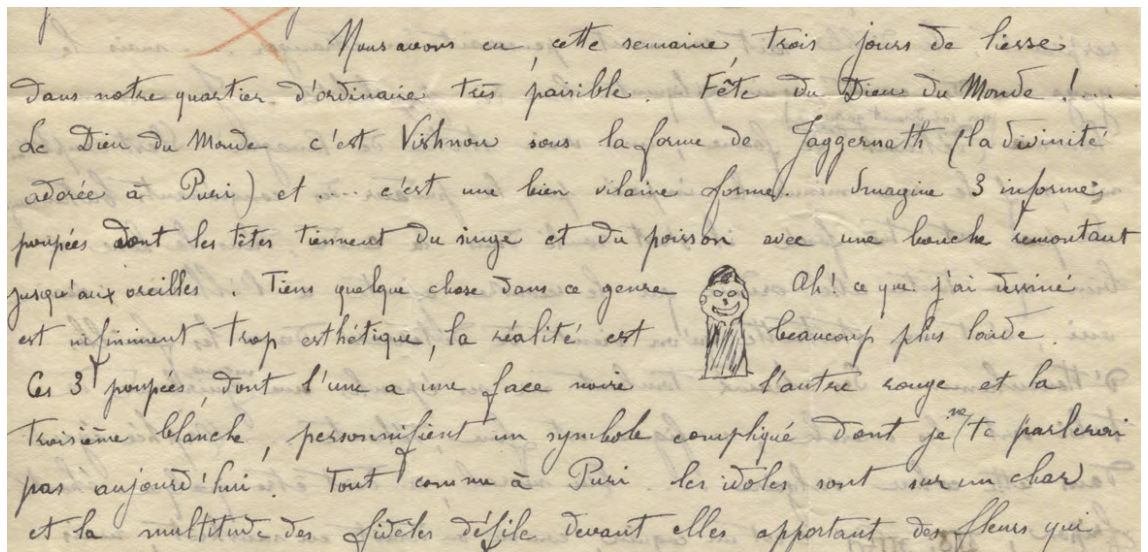 Nous avons eu, cette semaine, trois jours de liesse
dans notre quartier d'ordinaire très paisible. Fête du Dieu du Monde !...
Le Dieu du Monde c'est Vishnou sous la forme de Jaggernath (la divinité
adorée à Puri) et .... c'est une bien vilaine forme. Imagine 3 informes
poupées dont les têtes tiennent du singe et du poisson avec une bouche remontant
jusqu'aux oreilles. Tiens quelque chose dans ce genre Ah! ce que j'ai dessiné
est infiniment trop esthétique, la réalité est beaucoup plus laide.
Ces 3 poupées, dont l'une a une face noire l'autre rouge et la
troisième blanche, personnifient un symbole compliqué dont je ne te parlerai
pas aujourd'hui. Tout comme à Puri les idoles sont sur un char
et la multitude des fidèles défile devant elles apportant des fleurs qui